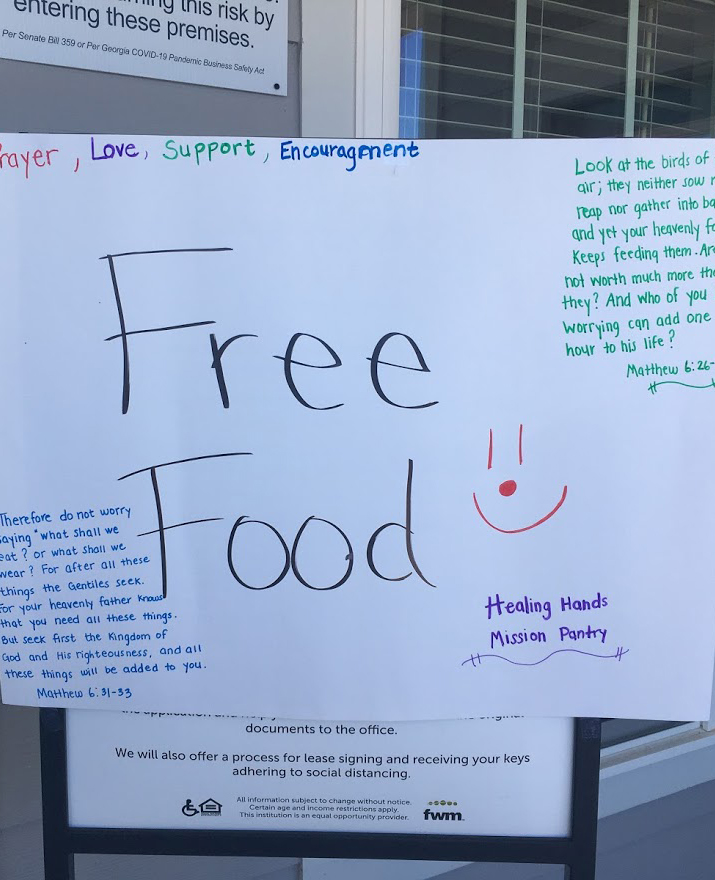 this risk by
entering these premises.
Per Senate Bill 359 or Per Georgia COVID-19 Pandemic Business Safety Act
rayer, Love, Support, Encouragement
Look at the birds of
air; they neither sow
reap nor gather into
and yet your heavenly
Keeps feeding them.
not worth much more
they? And who of you
worrying can add one
hour to his life?
Matthew 6:26-
Free
Food
Therefore do not worry
saying "what shall we
eat? or what shall we
wear? For after all these
things the Gentiles seek.
For your heavenly father knows
that you need all these things.
But seek first the Kingdom of
God and His righteousness, and all
these things will be added to you.
Matthew 6:31-33
Healing Hands
Mission Pantry
documents to the office.
We will also offer a process for lease signing and receiving your keys
adhering to social distancing.
All information subject to change without notice.
Certain age and income restrictions apply.
This institution is an equal opportunity provider.
fwm